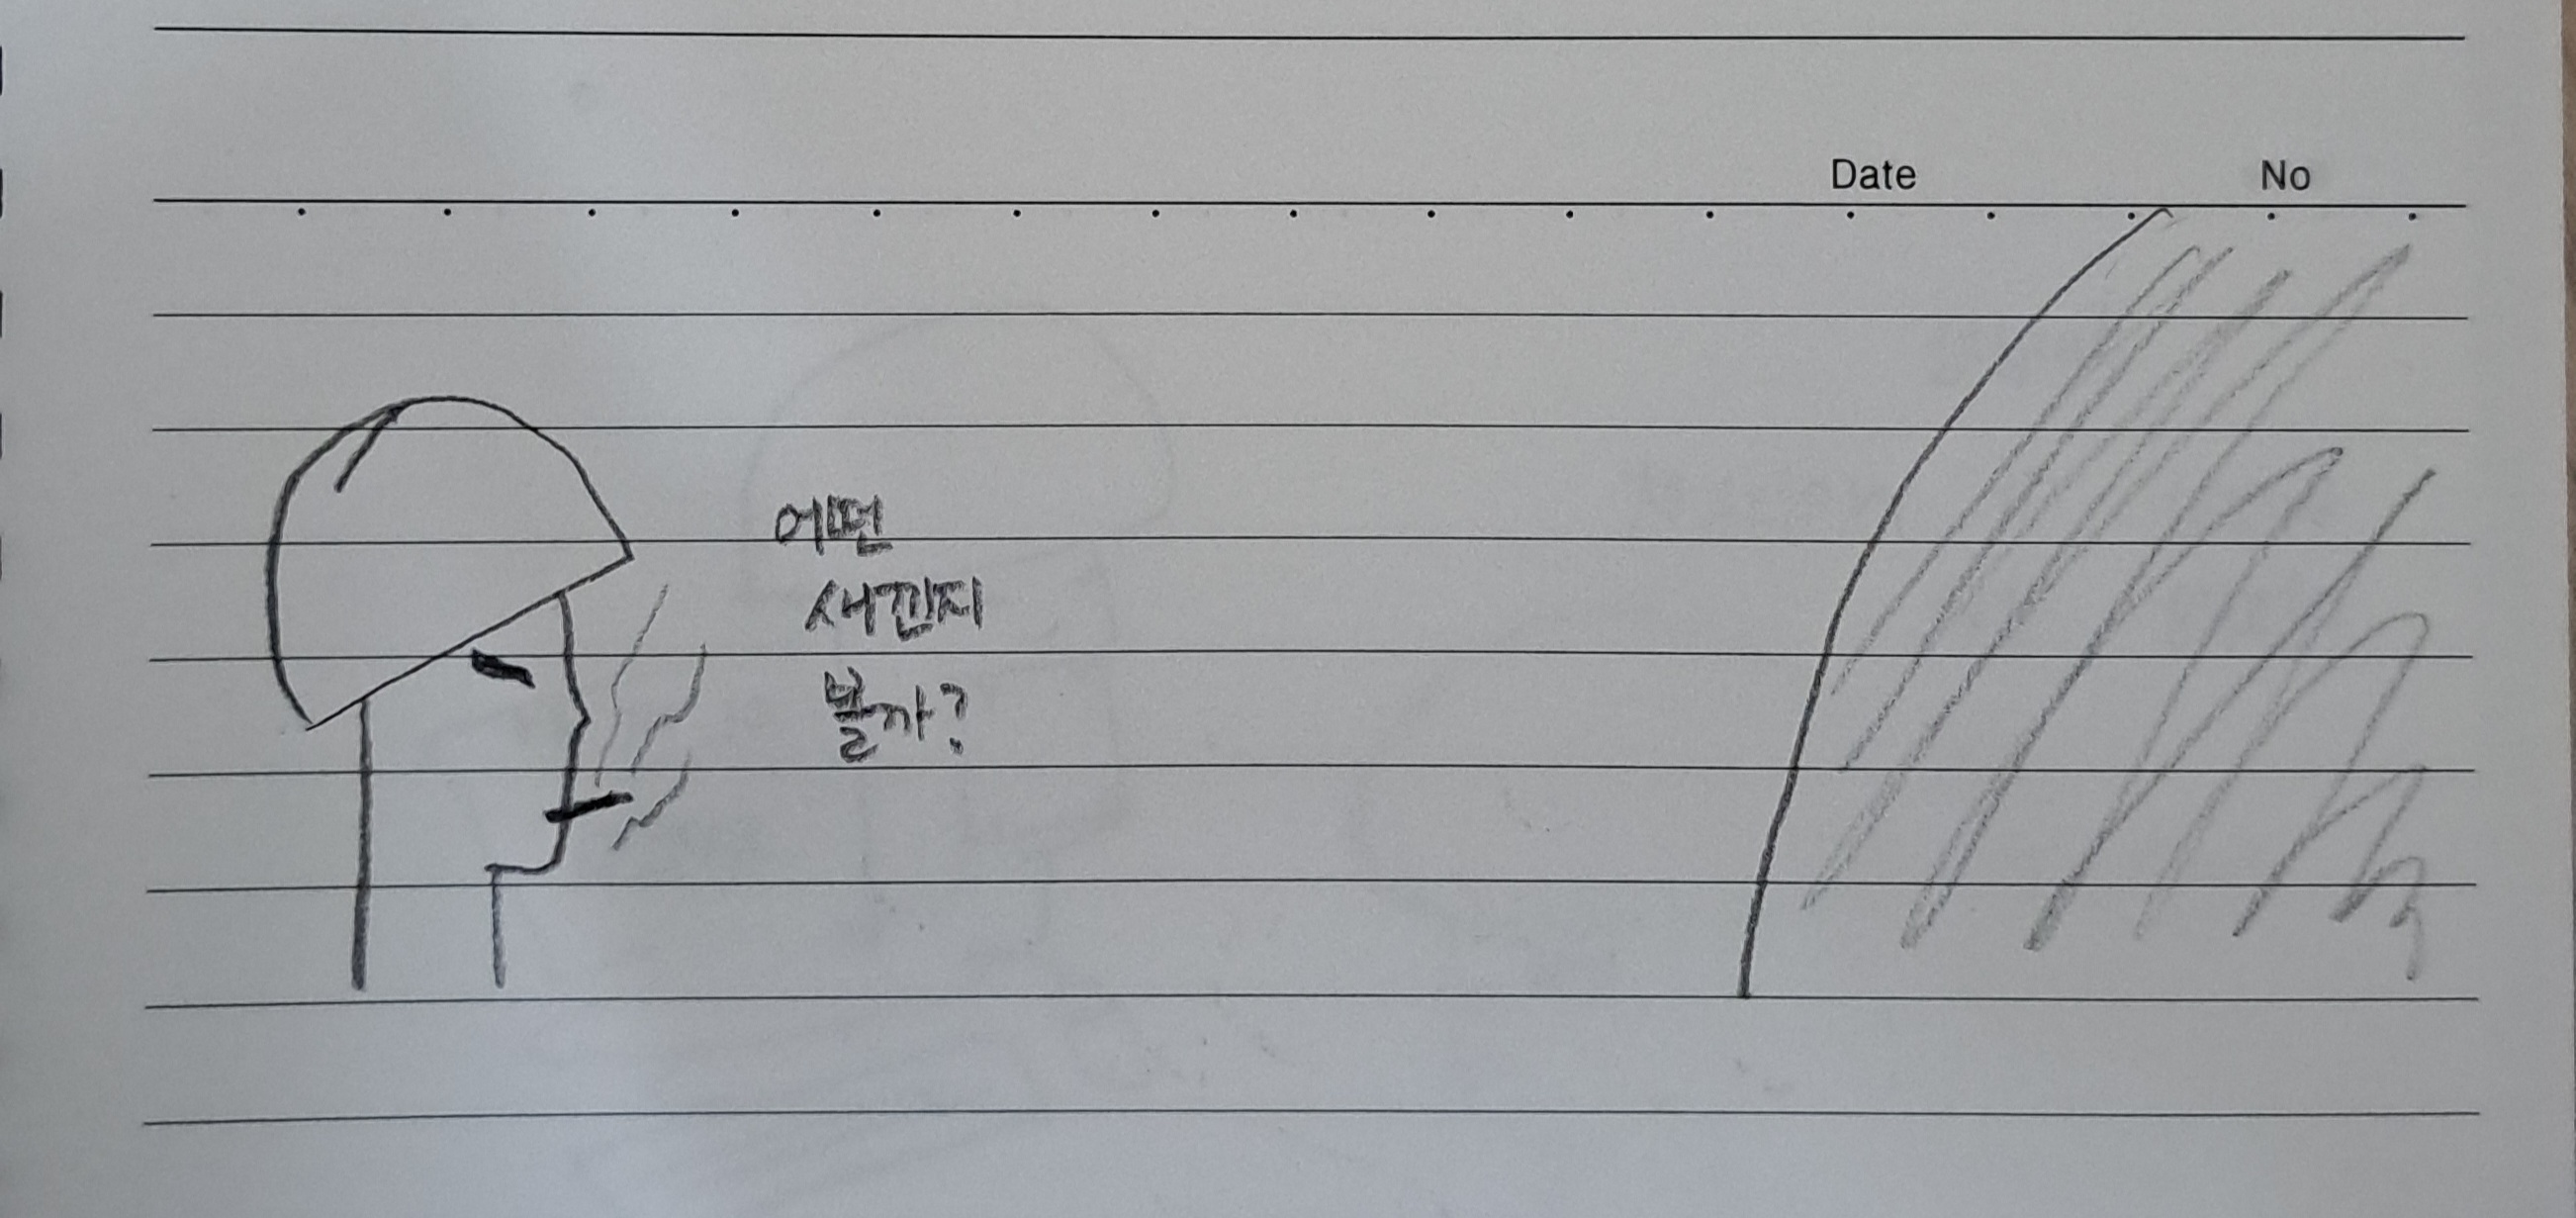 Date No
어떤
새낀지
볼까?